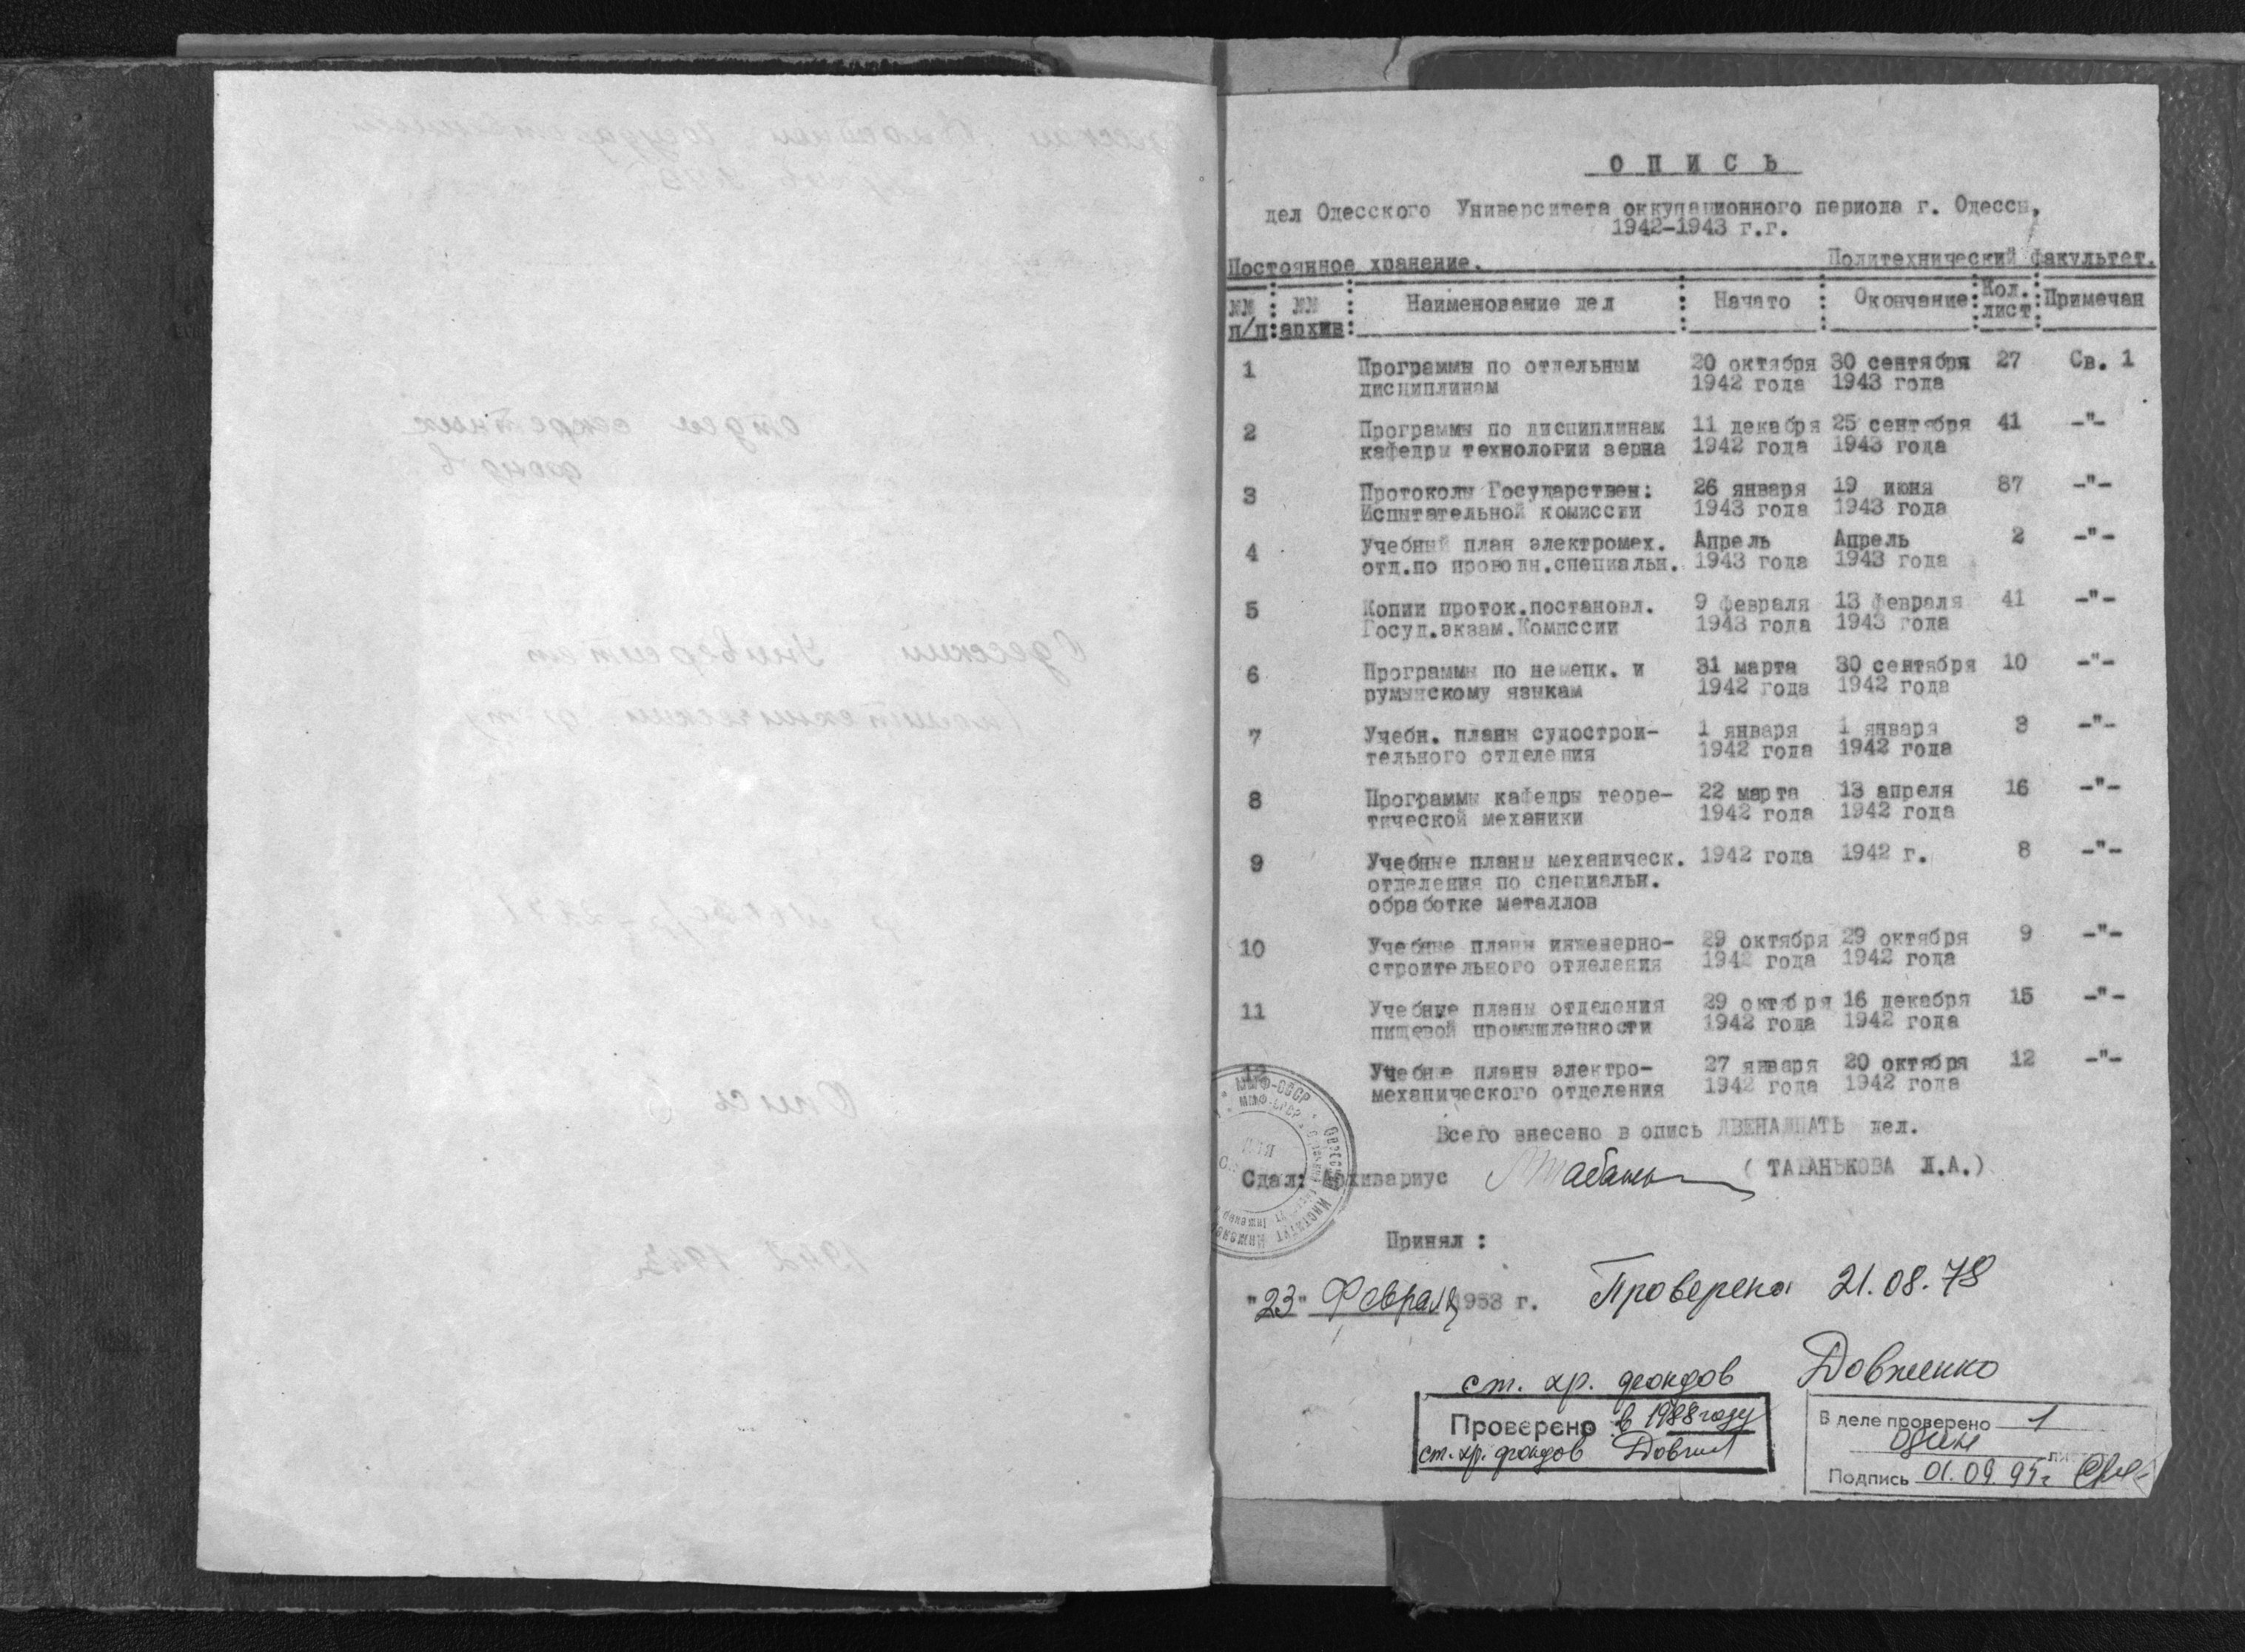 О П И С Ь
дел Одесского Университета оккупационного периода г. Одессы,
1942-1943 г.г.
Постоянное хранение. Политехнический факультет.
№№ п/п : №№ архив : Наименование дел : Начато : Окончание : Кол. лист : Примечан
1 Программы по отдельным 20 октября 30 сентября 27 Св. 1
дисциплинам 1942 года 1943 года
2 Программы по дисциплинам 11 декабря 25 сентября 41 -"-
кафедры технологии зерна 1942 года 1943 года
3 Протоколы Государствен: 26 января 19 июня 87 -"-
Испытательной комиссии 1943 года 1943 года
4 Учебный план электромех. Апрель Апрель 2 -"-
отд.по проводн.специальн. 1943 года 1943 года
5 Копии проток.постановл. 9 февраля 13 февраля 41 -"-
Госуд.экзам.Комиссии 1943 года 1943 года
6 Программы по немецк. и 31 марта 30 сентября 10 -"-
румынскому языкам 1942 года 1942 года
7 Учебн. планы судострои- 1 января 1 января 3 -"-
тельного отделения 1942 года 1942 года
8 Программы кафедры теоре- 22 марта 13 апреля 16 -"-
тической механики 1942 года 1942 года
9 Учебные планы механическ. 1942 года 1942 г. 8 -"-
отделения по специальн.
обработке металлов
10 Учебные планы инженерно- 29 октября 29 октября 9 -"-
строительного отделения 1942 года 1942 года
11 Учебные планы отделения 29 октября 16 декабря 15 -"-
пищевой промышленности 1942 года 1942 года
12 Учебные планы электро- 27 января 20 октября 12 -"-
механического отделения 1942 года 1942 года
Всего внесено в опись ДВЕНАДЦАТЬ дел.
Сдал: Архивариус (ТАБАНЬКОВА Л.А.)
ММФ-СССР Одесский Институт Инженеров
Принял :
"23" Февраля 1953 г. Проверена 21.08.78
ст. хр. фондов Довженко
Проверено в 1988 году
ст. хр. фондов
В деле проверено 1
один
Подпись 01.09.95г